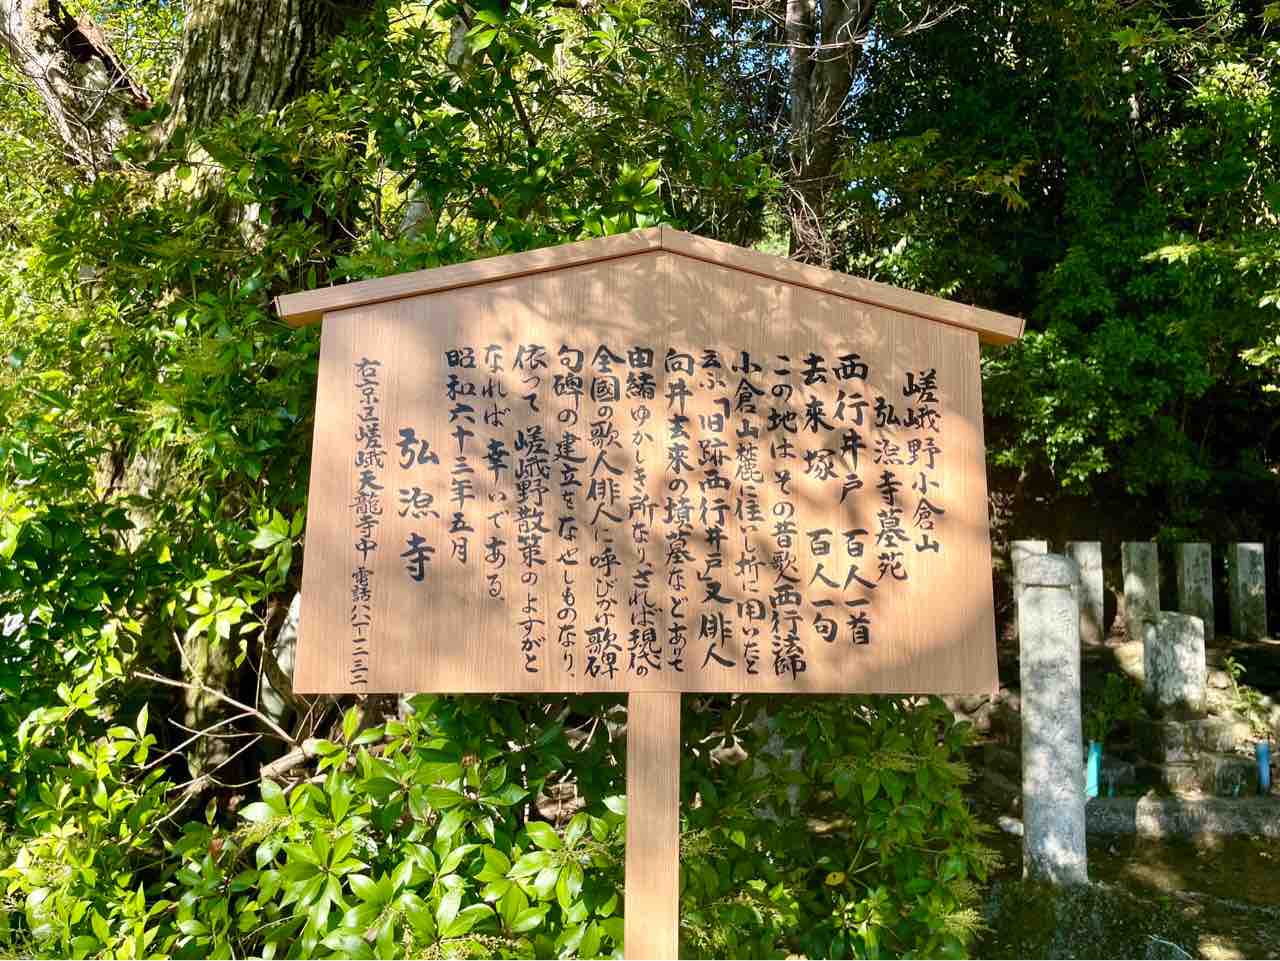 嵯峨野小倉山
弘源寺墓苑
西行井戸 百人一首
去来塚 百人一句
この地はその昔歌人西行法師
小倉山麓に住いし折に用いたと
云ふ「旧跡西行井戸」又俳人
向井去来の墳墓などありて
由緒ゆかしき所なり、されば現代の
全国の歌人俳人に呼びかけ歌碑
句碑の建立をなせしものなり、
依って嵯峨野散策のよすがと
なれば幸いである、
昭和六十三年五月
弘源寺
右京区嵯峨天龍寺中 電話八八一ー二三二